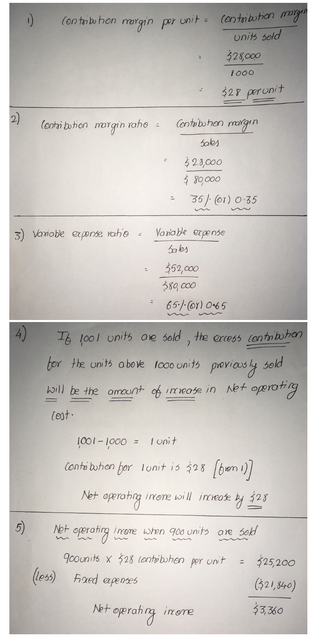 1) Contribution margin per unit = Contribution margin
units sold
= $28,000
1000
= $28 per unit
2) Contribution margin ratio = Contribution margin
Sales
= $28,000
$ 80,000
= 35% (or) 0.35
3) Variable expense ratio = Variable expense
Sales
= $52,000
$80,000
= 65% (or) 0.65
4) If 1001 units are sold, the excess contribution
for the units above 1000 units previously sold
will be the amount of increase in Net operating
cost.
1001 - 1000 = 1 unit
Contribution for 1 unit is $28 [from 1)]
Net operating income will increase by $28
5) Net operating income when 900 units are sold
900 units x $28 contribution per unit = $25,200
(less) Fixed expenses ($21,840)
Net operating income $3,360